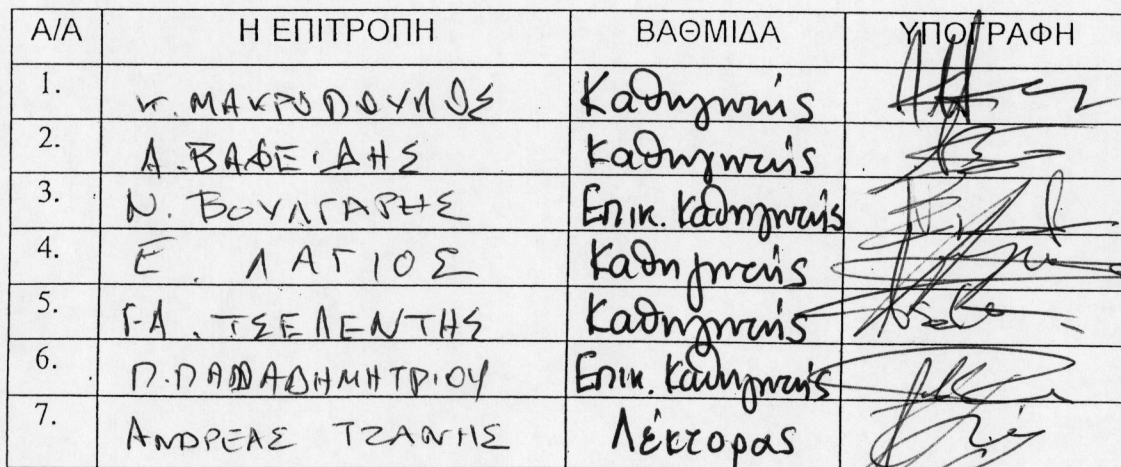 Α/Α Η ΕΠΙΤΡΟΠΗ ΒΑΘΜΙΔΑ ΥΠΟΓΡΑΦΗ
1. Κ. ΜΑΚΡΟΠΟΥΛΟΣ Καθηγητής
2. Α. ΒΑΦΕΙΔΗΣ Καθηγητής
3. Ν. ΒΟΥΛΓΑΡΗΣ Επικ. Καθηγητής
4. Ε. ΛΑΓΙΟΣ Καθηγητής
5. Γ-Α. ΤΣΕΛΕΝΤΗΣ Καθηγητής
6. Π. ΠΑΠΑΔΗΜΗΤΡΙΟΥ Επικ. Καθηγητής
7. ΑΝΔΡΕΑΣ ΤΖΑΝΗΣ Λέκτορας